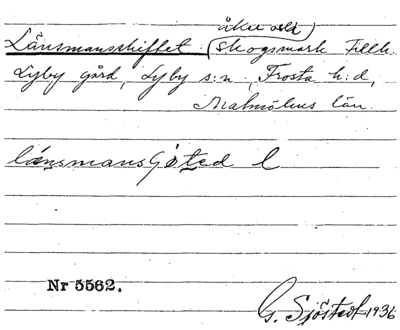 åker och)
Länsmansskiftet. (skogsmark Tillh.
Lyby gård, Lyby s:n, Frosta h:d,
Malmöhus län.
länsmans
Nr 5562.
G. Sjöstedt 1936